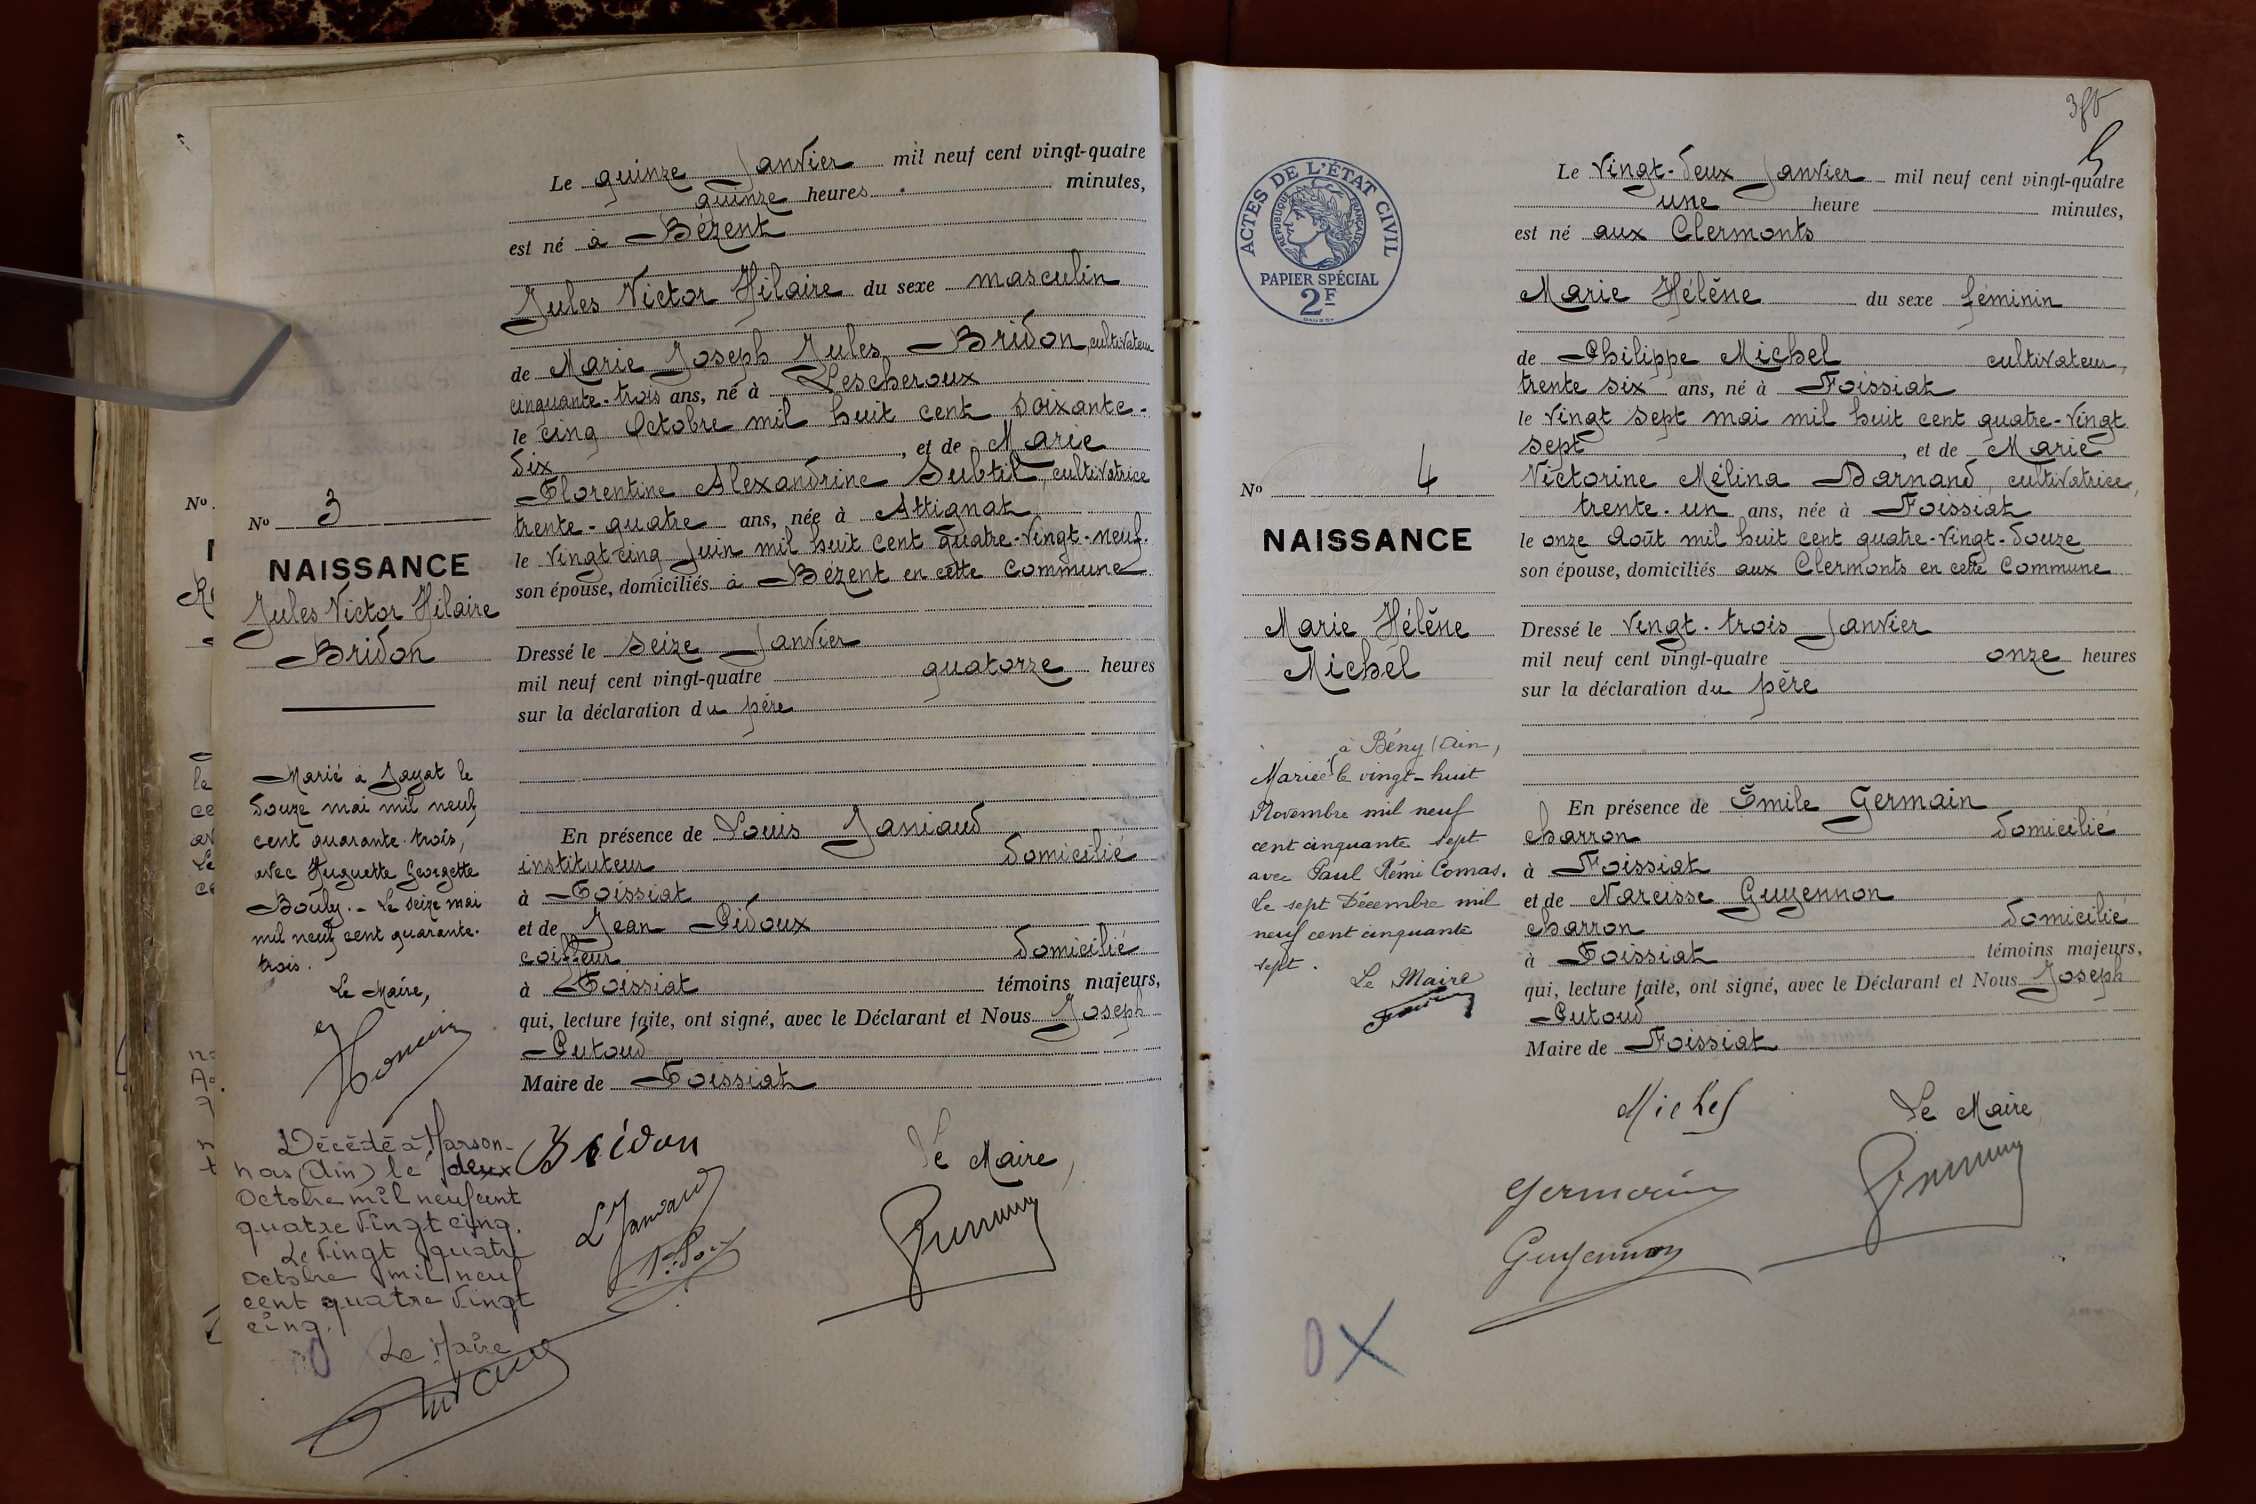 Le quinze Janvier mil neuf cent vingt-quatre
quinze heures minutes,
est né à Bézent
Jules Victor Hilaire du sexe masculin
de Marie Joseph Jules Bridon, cultivateur
cinquante-trois ans, né à Lescheroux
le cinq Octobre mil huit cent soixante-
dix, et de Marie
Florentine Alexandrine Subtil, cultivatrice
trente-quatre ans, née à Attignat
le vingt cinq Juin mil huit cent quatre-vingt-neuf.
son épouse, domiciliés à Bézent en cette Commune
Dressé le seize Janvier
mil neuf cent vingt-quatre quatorze heures
sur la déclaration du père
En présence de Louis Janiaud
instituteur domicilié
à Foissiat
et de Jean Pidoux
coiffeur domicilié
à Foissiat témoins majeurs,
qui, lecture faite, ont signé, avec le Déclarant et Nous Joseph
Putoud
Maire de Foissiat
Bridon
Le Maire,
No
No 3
NAISSANCE
Jules Victor Hilaire
Bridon
Marié à Jayat le
douze mai mil neuf
cent quarante-trois,
avec Huguette Georgette
Bouly. - Le seize mai
mil neuf cent quarante-
trois.
Le Maire,
Décédé à Marson-
nas (Ain) le deux
Octobre mil neuf cent
quatre vingt cinq.
Le vingt quatre
Octobre mil neuf
cent quatre vingt
cinq.
Le Maire
ACTES DE L'ÉTAT CIVIL
RÉPUBLIQUE FRANÇAISE
PAPIER SPÉCIAL
2F
5
Le vingt-deux Janvier mil neuf cent vingt-quatre
une heure minutes,
est né aux Clermonts
Marie Hélène du sexe féminin
de Philippe Michel cultivateur,
trente six ans, né à Foissiat
le vingt sept mai mil huit cent quatre-vingt
sept, et de Marie
Victorine Mélina Darnand, cultivatrice,
trente-un ans, née à Foissiat
le onze Août mil huit cent quatre-vingt-douze
son épouse, domiciliés aux Clermonts en cette Commune
Dressé le vingt-trois Janvier
mil neuf cent vingt-quatre onze heures
sur la déclaration du père
En présence de Émile Germain
charron domicilié
à Foissiat
et de Narcisse Guyennon
charron domicilié
à Foissiat témoins majeurs,
qui, lecture faite, ont signé, avec le Déclarant et Nous Joseph
Putoud
Maire de Foissiat
Michel
Le Maire
Germain
Guyennon
No 4
NAISSANCE
Marie Hélène
Michel
à Bény (Ain,
Mariée le vingt-huit
Novembre mil neuf
cent cinquante sept
avec Paul Rémi Comas.
Le sept Décembre mil
neuf cent cinquante
sept.
Le Maire
0 X